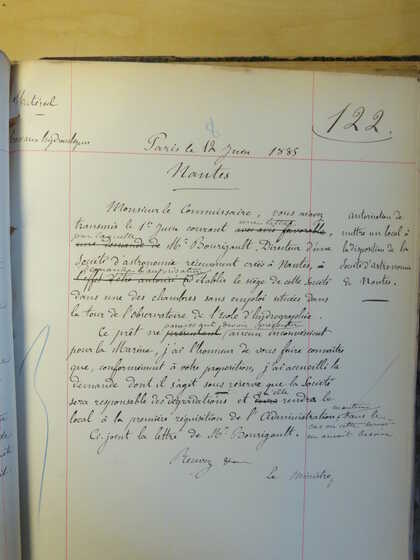 Matériel
Travaux hydrauliques
122.
Paris le 12 Juin 1885
Nantes
Monsieur le Commissaire, vous m'avez
transmis le 1er Juin courant une lettre avec avis favorable,
par laquelle une demande de Mr Bourigault, Directeur d'une
Société d'astronomie récemment créée à Nantes, a
demandé l'autorisation d'établir le siège de cette Société
dans une des chambres sans emploi situées dans
la tour de l'observatoire de l'école d'hydrographie.
Ce prêt ne présentant aucun inconvénient
pour la Marine, j'ai l'honneur de vous faire connaître
que, conformément à votre proposition, j'ai accueilli la
demande dont il s'agit sous réserve que la Société
sera responsable des dégradations et qu'elle rendra le
local à la première réquisition de l'Administration, dans le
cas où cette dernière
en aurait besoin
Ci-joint la lettre de Mr Bourigault.
Recevez
Le Ministre
autorisation de
mettre un local à
la disposition de la
Société d'astronomie
de Nantes.